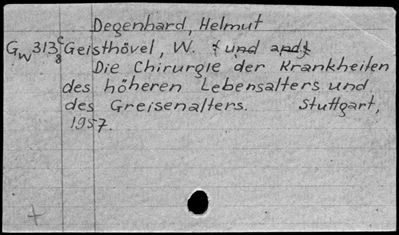 Degenhard, Helmut
Gw 313 c8 Geisthövel, W. {und and.}
Die Chirurgie der Krankheiten
des höheren Lebensalters und
des Greisenalters. Stuttgart,
1957.
+